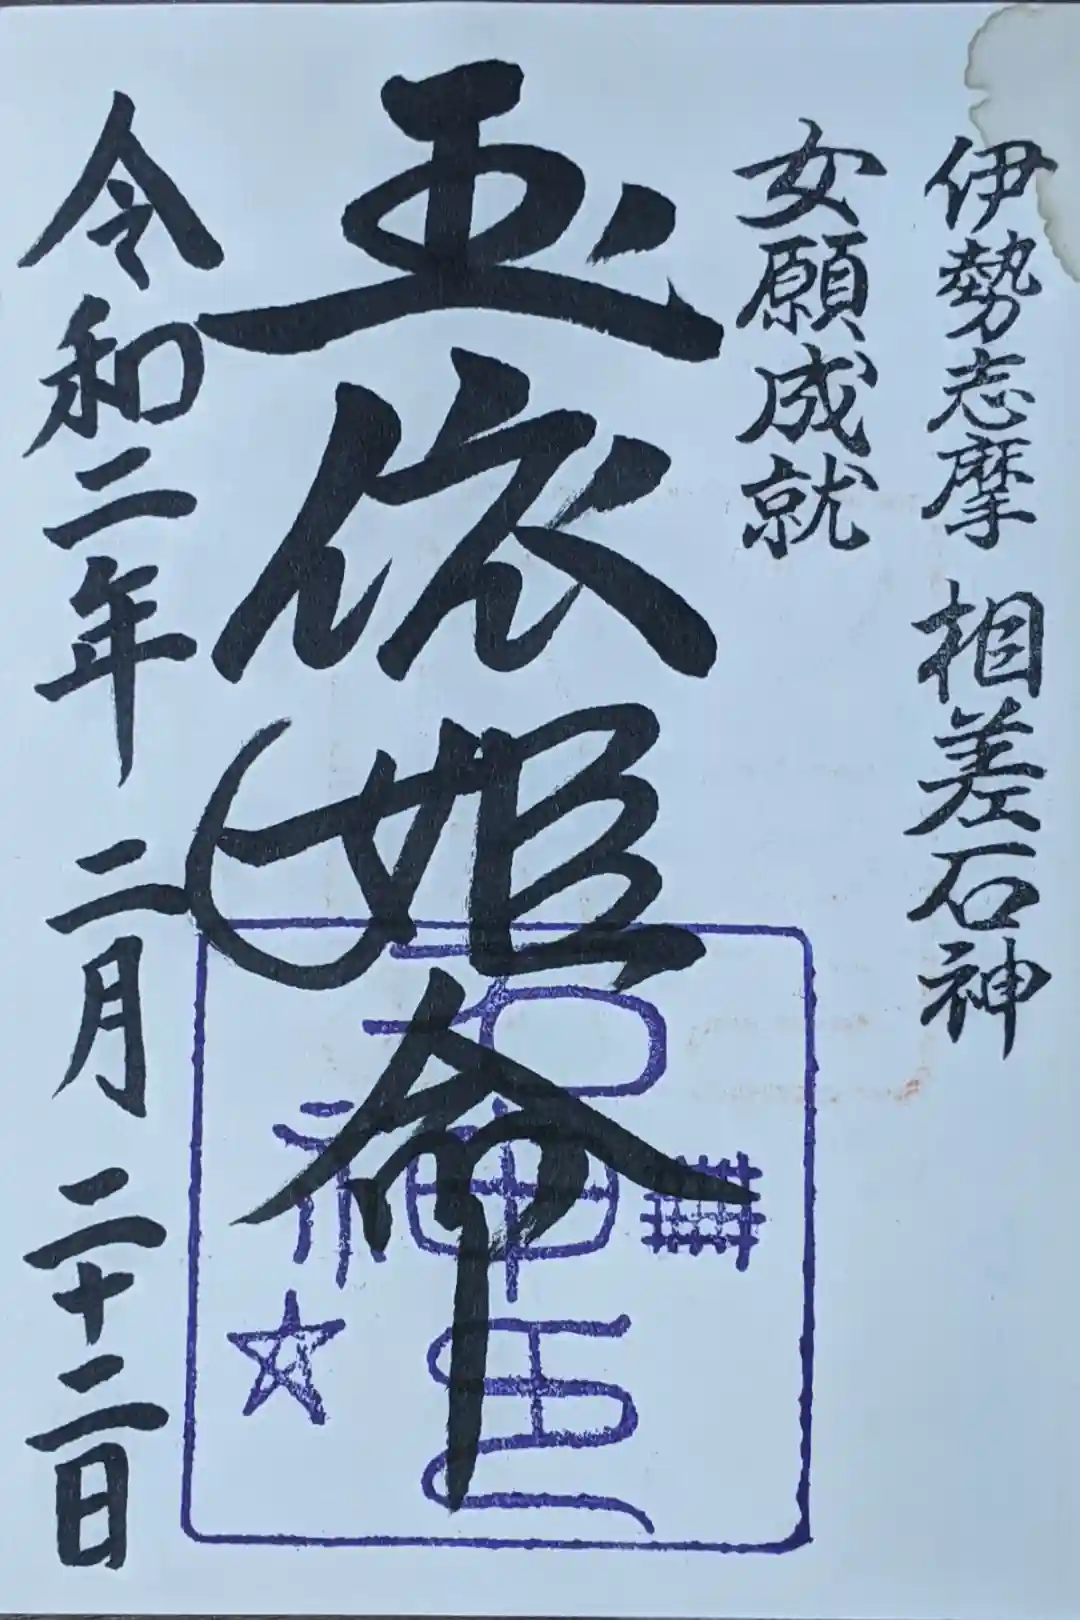 伊勢志摩 相差石神
女願成就
玉依姫命
令和二年 二月 二十二日
石
神